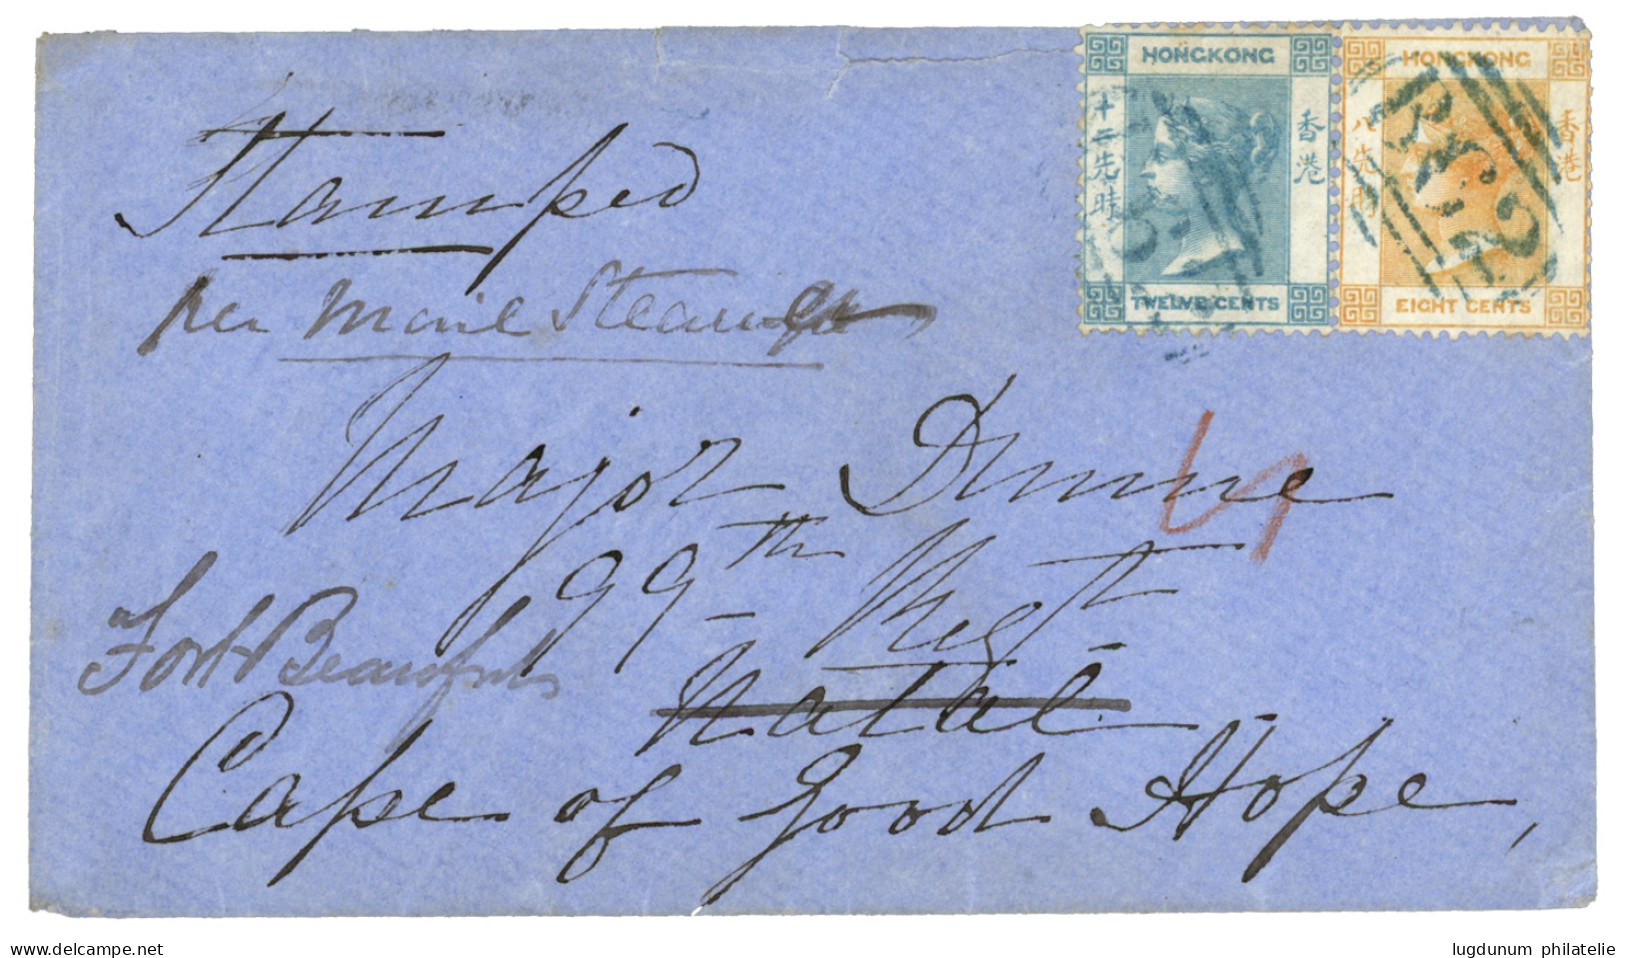 HONGKONG
十二先時
香港
TWELVE CENTS
HONGKONG
八先時
香港
EIGHT CENTS
B62
Stamped
per Mail Steamer
Major Dunne
99th Regt
Natal
Fort Beaufort
Cape of Good Hope,
www.delcampe.net
lugdunum philatelie